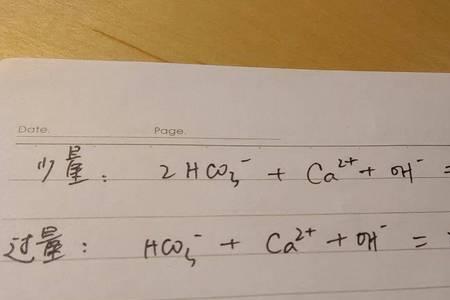 Date. Page.
少量: 2HCO₃⁻ + Ca²⁺ + OH⁻ =
过量: HCO₃⁻ + Ca²⁺ + OH⁻ =